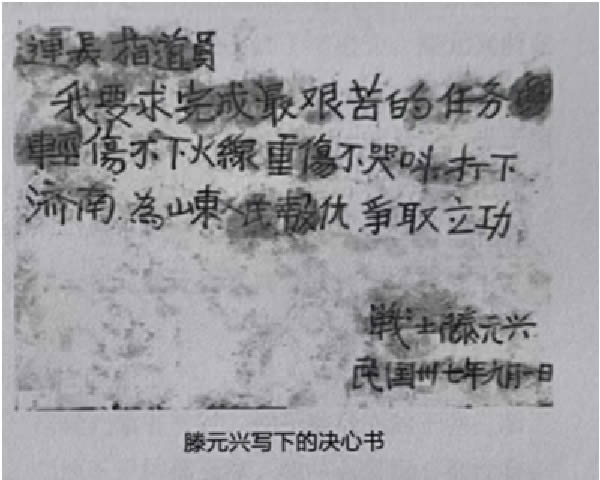 連長 指道員
我要求完成最艰苦的任务
輕傷不下火線重傷不哭叫.打下
济南.為山東人民報仇爭取立功
戰士滕元兴
民国卅七年九月一日
滕元兴写下的决心书